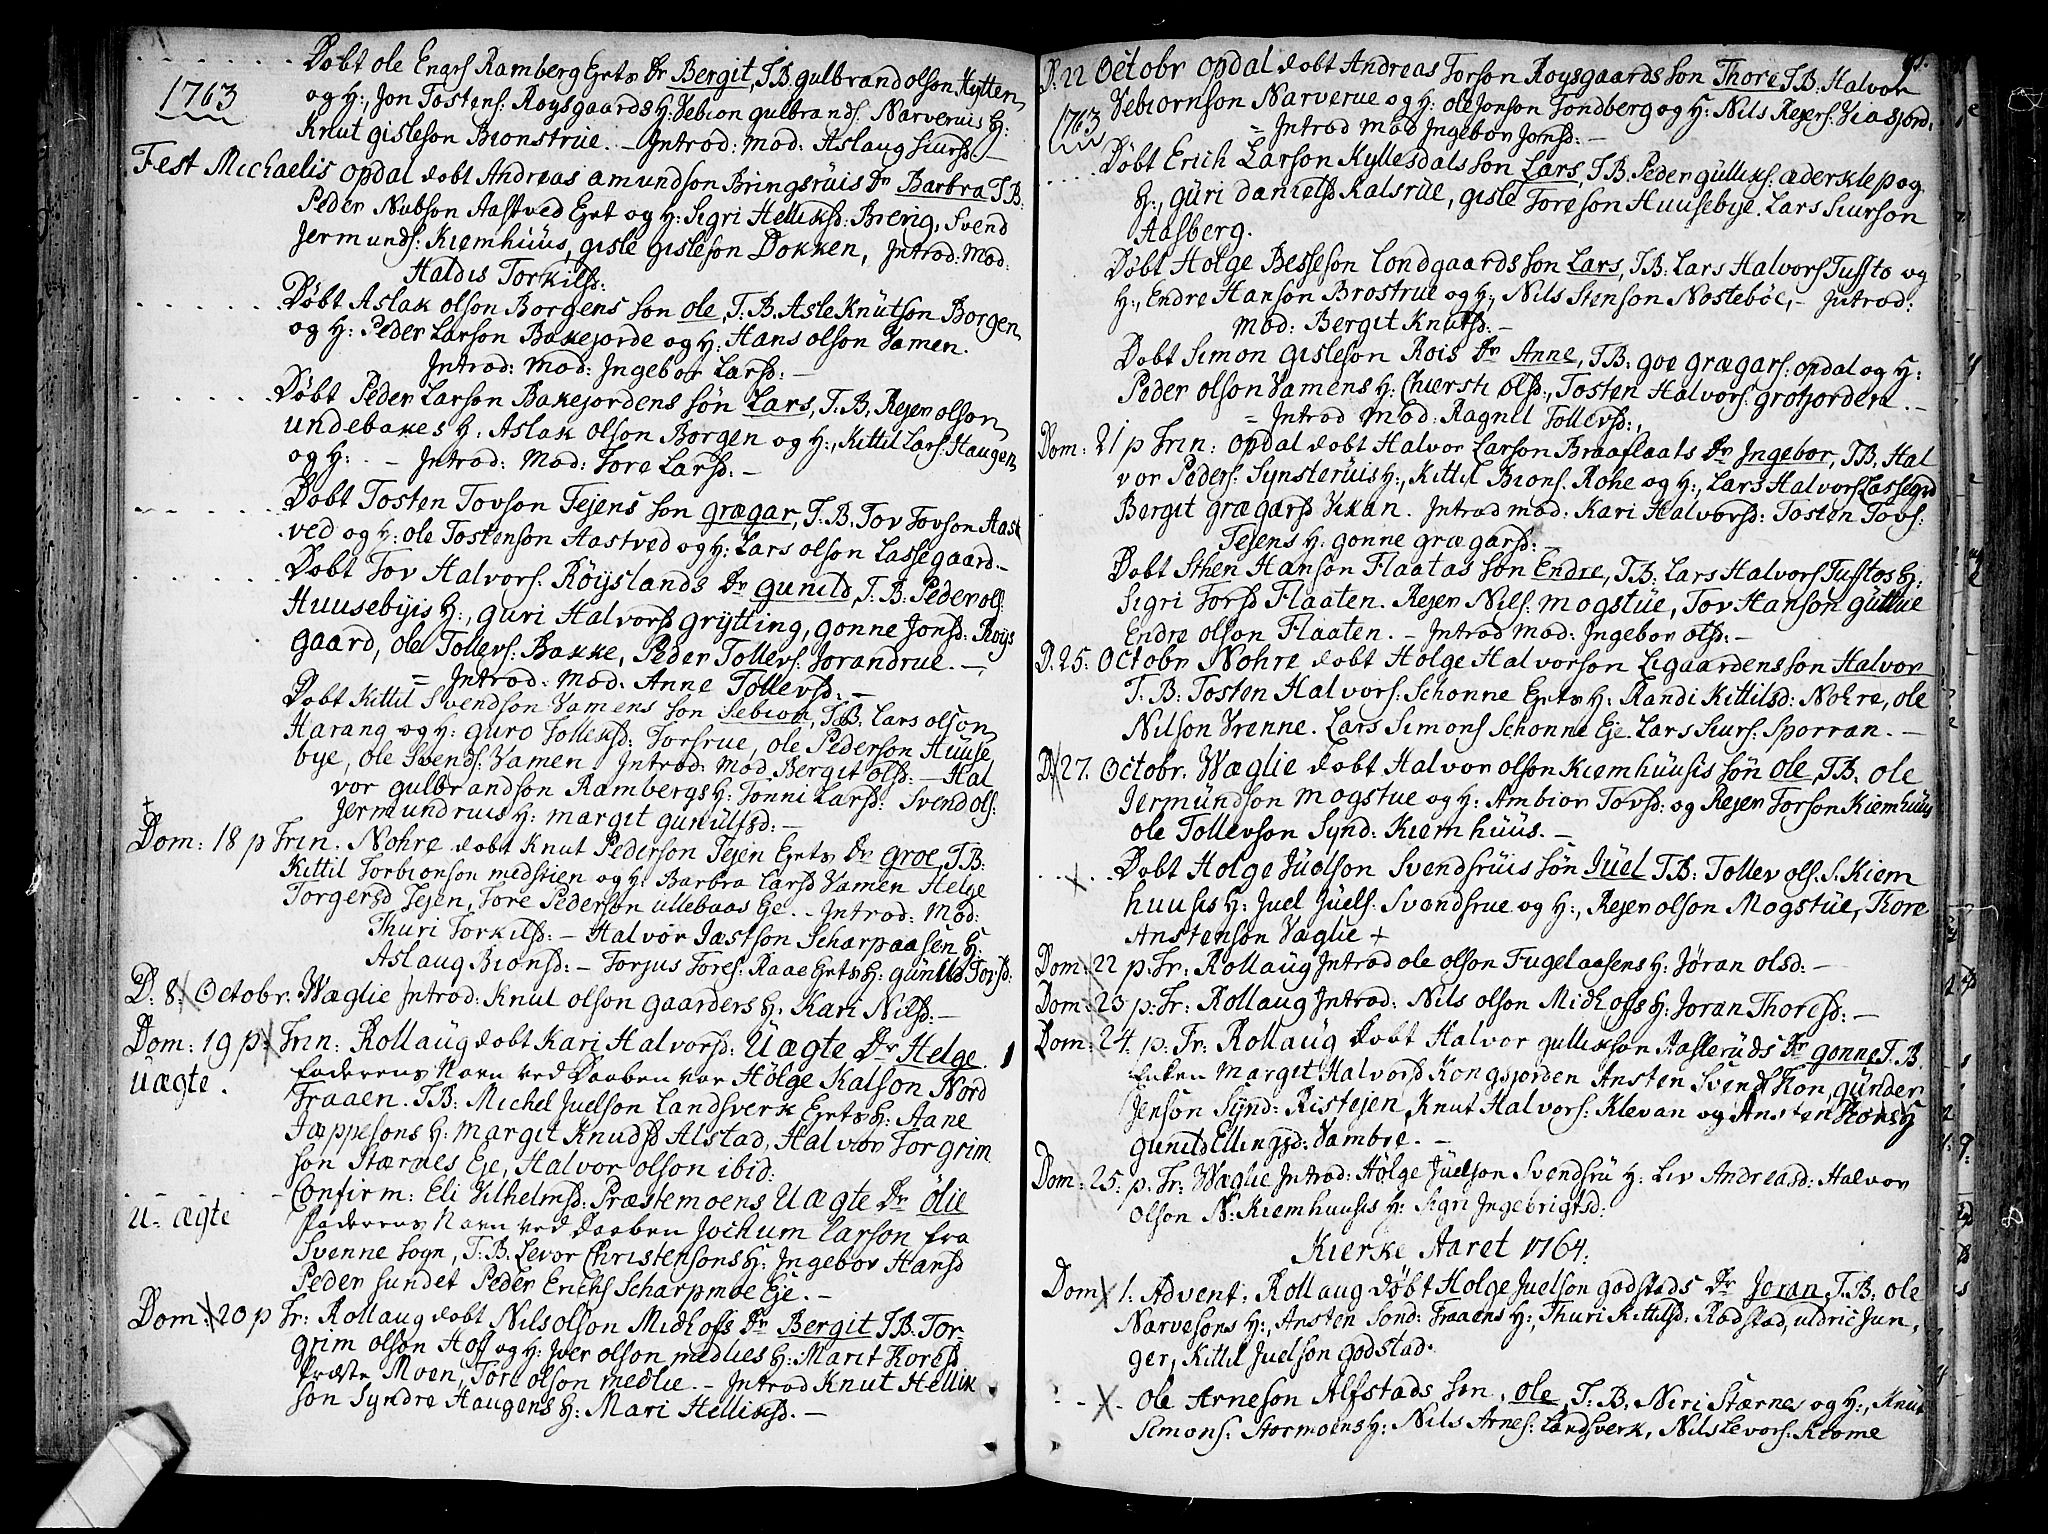 1763
Døbt ole Engels Ramberg Eyets Dr Bergit, T.B. gulbrand olson Hytten
og H:, Jon Tostens: Roysgaards H: Vebion gulbrands: Narveruis H:
Knut gisleson Bionstrue. — Introd: Mod: Aslaug Siursd: —
Fest Michaelis Opdal døbt Andreas amundson Bringsruis Dr Barbra T.B:
Peder Nubson Aastved Eyet og H: Sigri Helliksd: Brevig, Svend
Jermunds: Kiemhuus, gisle gisleson Dokken, Introd: Mod:
Haldis Torkilsd:
Døbt Aslak olson Borgens son ole, T.B. Asle Knutson Borgen
og H: Peder Larson Bakejorde og H: Hans olson Vamen.
Introd: Mod: Ingebor Larsd: —
Døbt Peder Larson Bakejordens søn Lars, T.B. Rejer olson
undebakes H: Aslak olson Borgen og H:, Kittil Lars: Haugen
og H: — Introd: Mod: Tore Larsd: —
Døbt Tosten Tovson Tejens son grægar, T.B. Tov Tovson Aast
ved og H: ole Tostenson Aastved og H: Lars olson Lassegaard —
Døbt Tov Halvors: Røyslands Dr gunild, T.B: Peder ols:
Huusebyis H:, guri Halvorsd grytting, gonne Jonsd: Røys
gaard, ole Tollevs: Bakke, Peder Tollevs: Jorandrue. —
= Introd: Mod: Anne Tollevsd: —
Døbt Kittil Svendson Vamens son Sebion, T.B: Lars olson
Harang og H: guro Tolleksd: Torsrue, ole Pederson Huuse
bye, ole Svends: Vamen. Introd: Mod Bergit olsd: — Hal
vor gulbrandson Rambergs H: Tonni Larsd: Svend ols:
Jermundruis H: margit gunulfsd: —
Dom: 18 p Trin. Nohre døbt Knut Pederson Tejen Eyets Dr groe, T.B:
Kittil Torbionson medstien og H: Barbra Larsd Vamen Helge
Torgersd Tejen, Tore Pederson ullebaas Eje. — Introd: Mod:
Thuri Torkilsd: — Halvor Jastson Scharpaasen H:
Aslaug Bionsd: — Torjus Tores: Raae Eyets H: gunild Torsd:
D: 8: Octobr. Wæglie Introd: Knut olson gaarders H: Kari Nilsd: —
Dom: 19 p: Trin: Rollaug døbt Kari Halvorsd: Uægte Dr Helge.
Uægte. faderens Navn ved Daaben var Holge Kalson Nord
Fraaen. T.B: Michel Juelson Landsverk Eyets H: Aane
Jæppesons H: margit Knudsd Alstad, Halvor Torgrim
son Stærnes Eje, Halvor olson ibid:
U-ægte Confirm: Eli Vilhelmsd: Præstemoens Uægte Dr ölie
Faderens Navn ved Daaben Jochum Larson fra
Svenne sogn, T.B. Levor Christensons H: Ingebor Hansd
Peder sundet Peder Erichs Scharpmoe Eje. —
Dom: 20 p Tr: Rollaug døbt Nils olson Midhofs Dr Bergit T.B: Tor-
grim olson Hoff og H: Iver olson medlies H: Marit Toresd
Præste Moen, Tore olson medlie. — Introd Knut Hellik
son Syndre Haugens H: Mari Helliksd. —
D. 22 Octobr Opdal døbt Andreas Torson Roysgaards son Thore T.B: Halvor
1763 Vebiornson Narverue og H: ole Jonson Tondberg og H: Nils Rejers: Viasjord
= Introd Mod Ingebor Jonsd: —
Døbt Erich Larson Kyllesdals son Lars, T.B. Peder gulliks: æderklep og
H:, guri danielsd Kalsrue, gisle Toreson Huusebye. Lars Siurson
Aasberg.
Døbt Holge Besseson Londgaards son Lars, T.B. Lars Halvors Tuffto og
H:, Endre Hanson Brostrue og H:, Nils Stenson Nosteböe, — Introd:
Mod: Bergit Knutsd: —
Døbt Simon gisleson Rois Dr Anne, T.B: goe grægars: opdal og H:
Peder olson Vamens H: Chiersti olsd:, Tosten Halvors: grotjorden. —
= Introd Mod: Ragnil Tollevsd:,
Dom: 21 p Trin: Opdal døbt Halvor Larson Braaflaats Dr Ingebor, T.B. Hal
vor Peders: Synsteruis H:, Kittil Bions: Rohe og H:, Lars Halvors Lassegrd
Bergit grægarsd Vikan. Introd mod: Kari Halvorsd: Tosten Tovs:
Tejens H: gonne grægarsd: —
Døbt Sthen Hanson Flaatas son Endre, T.B: Lars Halvors Tufftos H:
Sigri Torsd Flaaten. Rejer Nils: Mogstue, Tov Hanson guttue
Endre olson Flaaten. — Introd Mod: Ingebor olsd: —
D. 25: Octobr Nohre døbt Holge Halvorson Ligaardens son Halvor
T.B: Tosten Halvors: Schonne Eyets H: Randi Kittilsd: Nohre, ole
Nilson Vrenne. Lars Simons Schonne Eje. Lars Siurs: Sporran. —
D. 27. Octobr. Wæglie døbt Halvor olson Kiemhuusis søn ole, T.B: ole
Jermundson Mogstue og H: Ambior Tovsd: og Rejer Torson Kiemhuus
ole Tollevson Synd: Kiemhuus. —
Døbt Holge Juelson Svendsruis søn Juel T.B: Tollev ols. S. Kiem
huusis H: Juel Juels: Svendsrue og H:, Rejer olson Mogstue, Thore
Anstenson Vaglie +
Dom: 22 p. Tr: Rollaug Introd ole olson Fugelaasens H: Jøran olsd: —
Dom: 23 p: Tr: Rollaug Introd: Nils olson Midhoffs H: Joran Thoresd: —
Dom: 24. p. Tr: Rollaug Døbt Halvor gullikson Haslerüds Dr gonne T.B.
Enken Margit Halvorsd Kongsjorden Ansten Svends Kon, günder
Jenson Synd: Ristejen, Knut Halvors: Klevan og Ansten Kons H
gunild Ellingsd: Vambre. —
Dom: 25: p. Tr: Wæglie Introd: Holge Juelson Svendsru H: Liv Andreasd: Halvor
Olson N: Kiemhuusis H: Sigri Ingebrigtsd:
Kierke Aaret 1764.
Dom 1. Advent: Rollaug døbt Holge Juelson godstads Dr Joran, T.B: ole
Narvesons H:, Ansten Sond: Fraaens H:, Thuri Kittilsd: Rodstad, uldric Jun,
ger, Kittil Juelson godstad.
Ole Arneson Alfstads søn, ole, T.B. Neri Stærnes og H:, Knut
Simons: Stormoens H: Nils Arnes: Landsverk, Nils Levors: Kiome